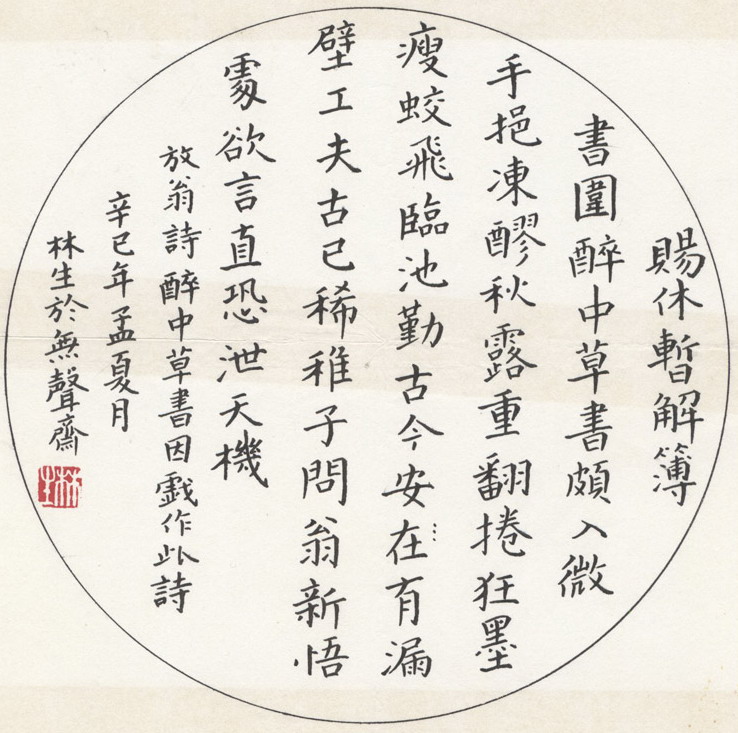 賜休暫解簿
書圍醉中草書頗入微
手挹凍醪秋露重翻捲狂墨
瘦蛟飛臨池勤古今安在有漏
壁工夫古已稀稚子問翁新悟
處欲言直恐泄天機
放翁詩醉中草書因戲作此詩
辛巳年孟夏月
林生於無聲齋
林生